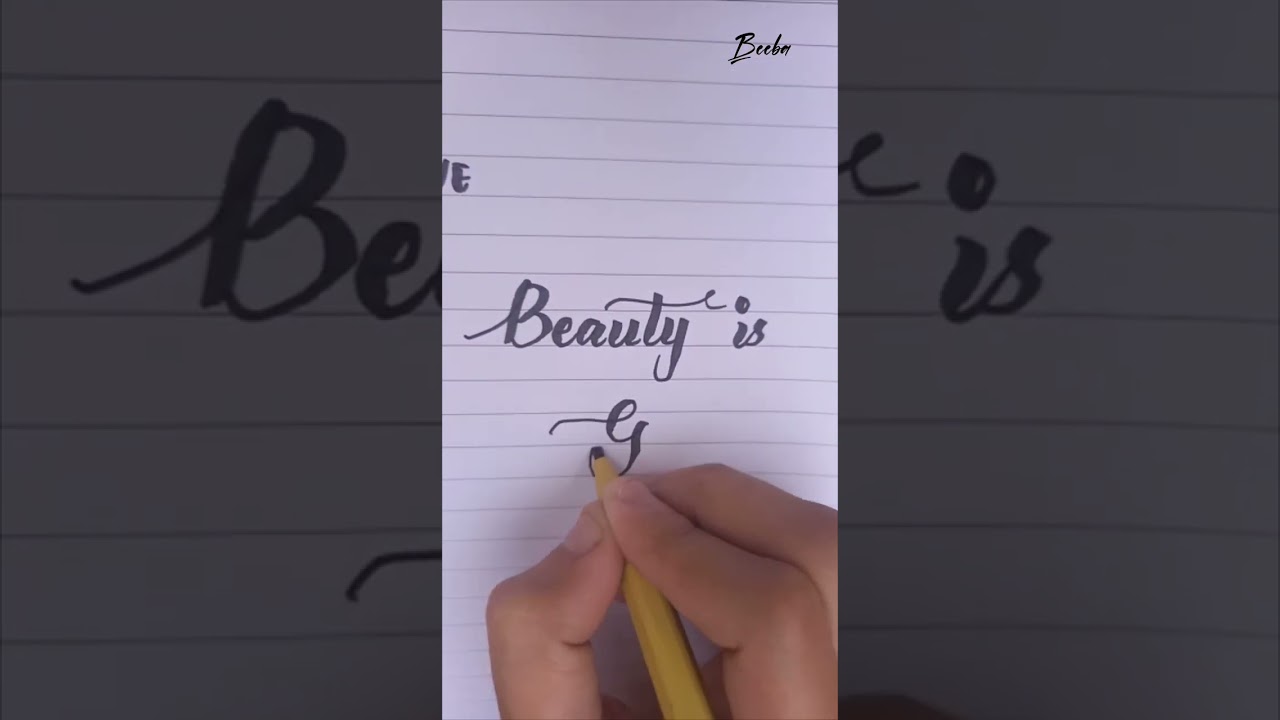 Beeba
Beauty is
G